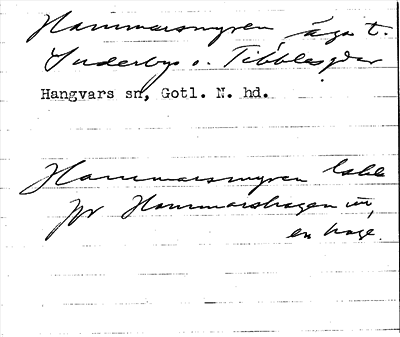 Hammarsmyren, äga t.
Suderbys o. Tibbles gdar
Hangvars sn, Gotl. N. hd.
Hammarsmyren
på Hammarshagen är,
en hage.